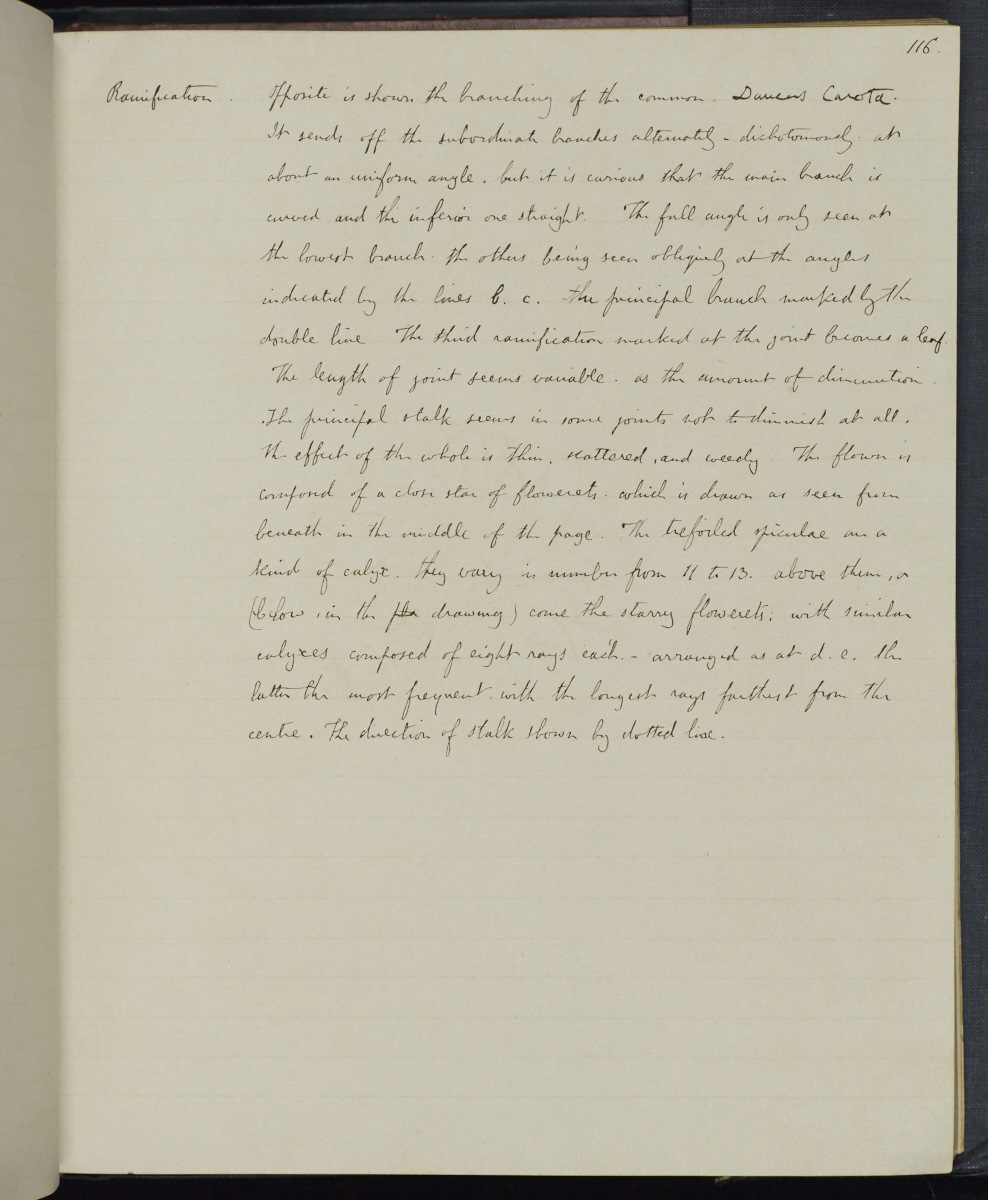 116.
Ramification. Opposite is shown the branching of the common. Daucus Carota.
It sends off the subordinate branches alternately - dichotomously. at
about an uniform angle. but it is curious that the main branch is
curved and the inferior one straight. The full angle is only seen at
the lowest branch. the others being seen obliquely at the angles
indicated by the lines b. c. the principal branch marked by the
double line The third ramification marked at the joint becomes a leaf.
The length of joint seems variable. as the amount of diminution.
.The principal stalk seems in some joints not to diminish at all.
The effect of the whole is thin, scattered, and weedy. The flower is
composed of a close star of flowerets. which is drawn as seen from
beneath in the middle of the page. The trefoiled spiculae are a
kind of calyx. they vary in number from 11 to 13. above them, or
(below, in the drawing) come the starry flowerets; with similar
calyxes composed of eight rays each. - arranged as at d. e. the
latter the most frequent. with the longest rays farthest from the
centre. The direction of stalk shown by dotted line.